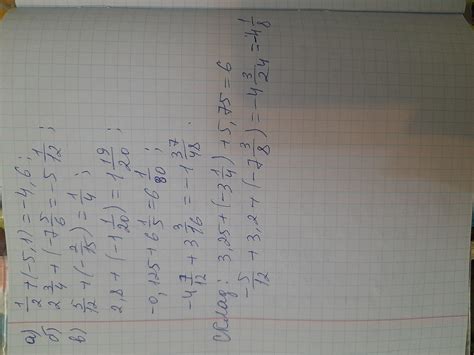 а) 1/2 + (-5,1) = -4,6 ;
б) 2 3/4 + (-7 5/6) = -5 1/12 ;
в) 5/12 + (-2/15) = 1/4 ;
2,8 + (-1 1/20) = 1 19/20 ;
-0,125 + 6 1/5 = 6 1/80 ;
-4 7/12 + 3 3/16 = -1 37/48 .
склад: 3,25 + (-3 1/4) + 5,75 = 6
-5/12 + 3,2 + (-7 3/8) = -4 3/24 = -4 1/8